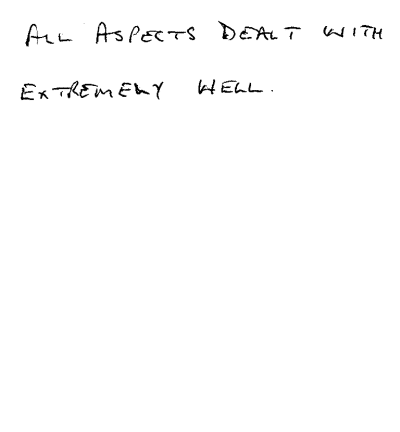 ALL ASPECTS DEALT WITH
EXTREMELY WELL.